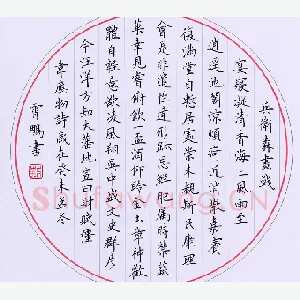 兵衛森畫戟
宴寢凝清香海上風雨至
逍遥池閣涼煩疴近消散嘉賓
復滿堂自慙居處崇未睹斯民康理
會是非遣性達形迹忘鮮肥屬時禁蔬
菓幸見嘗俯飲一盃酒仰聆金玉章神歡
體自輕意欲凌風翔吳中盛文史群彦
今汪洋方知大藩地豈曰財賦彊
韋應物詩歲在癸未孟冬
霄鵬書